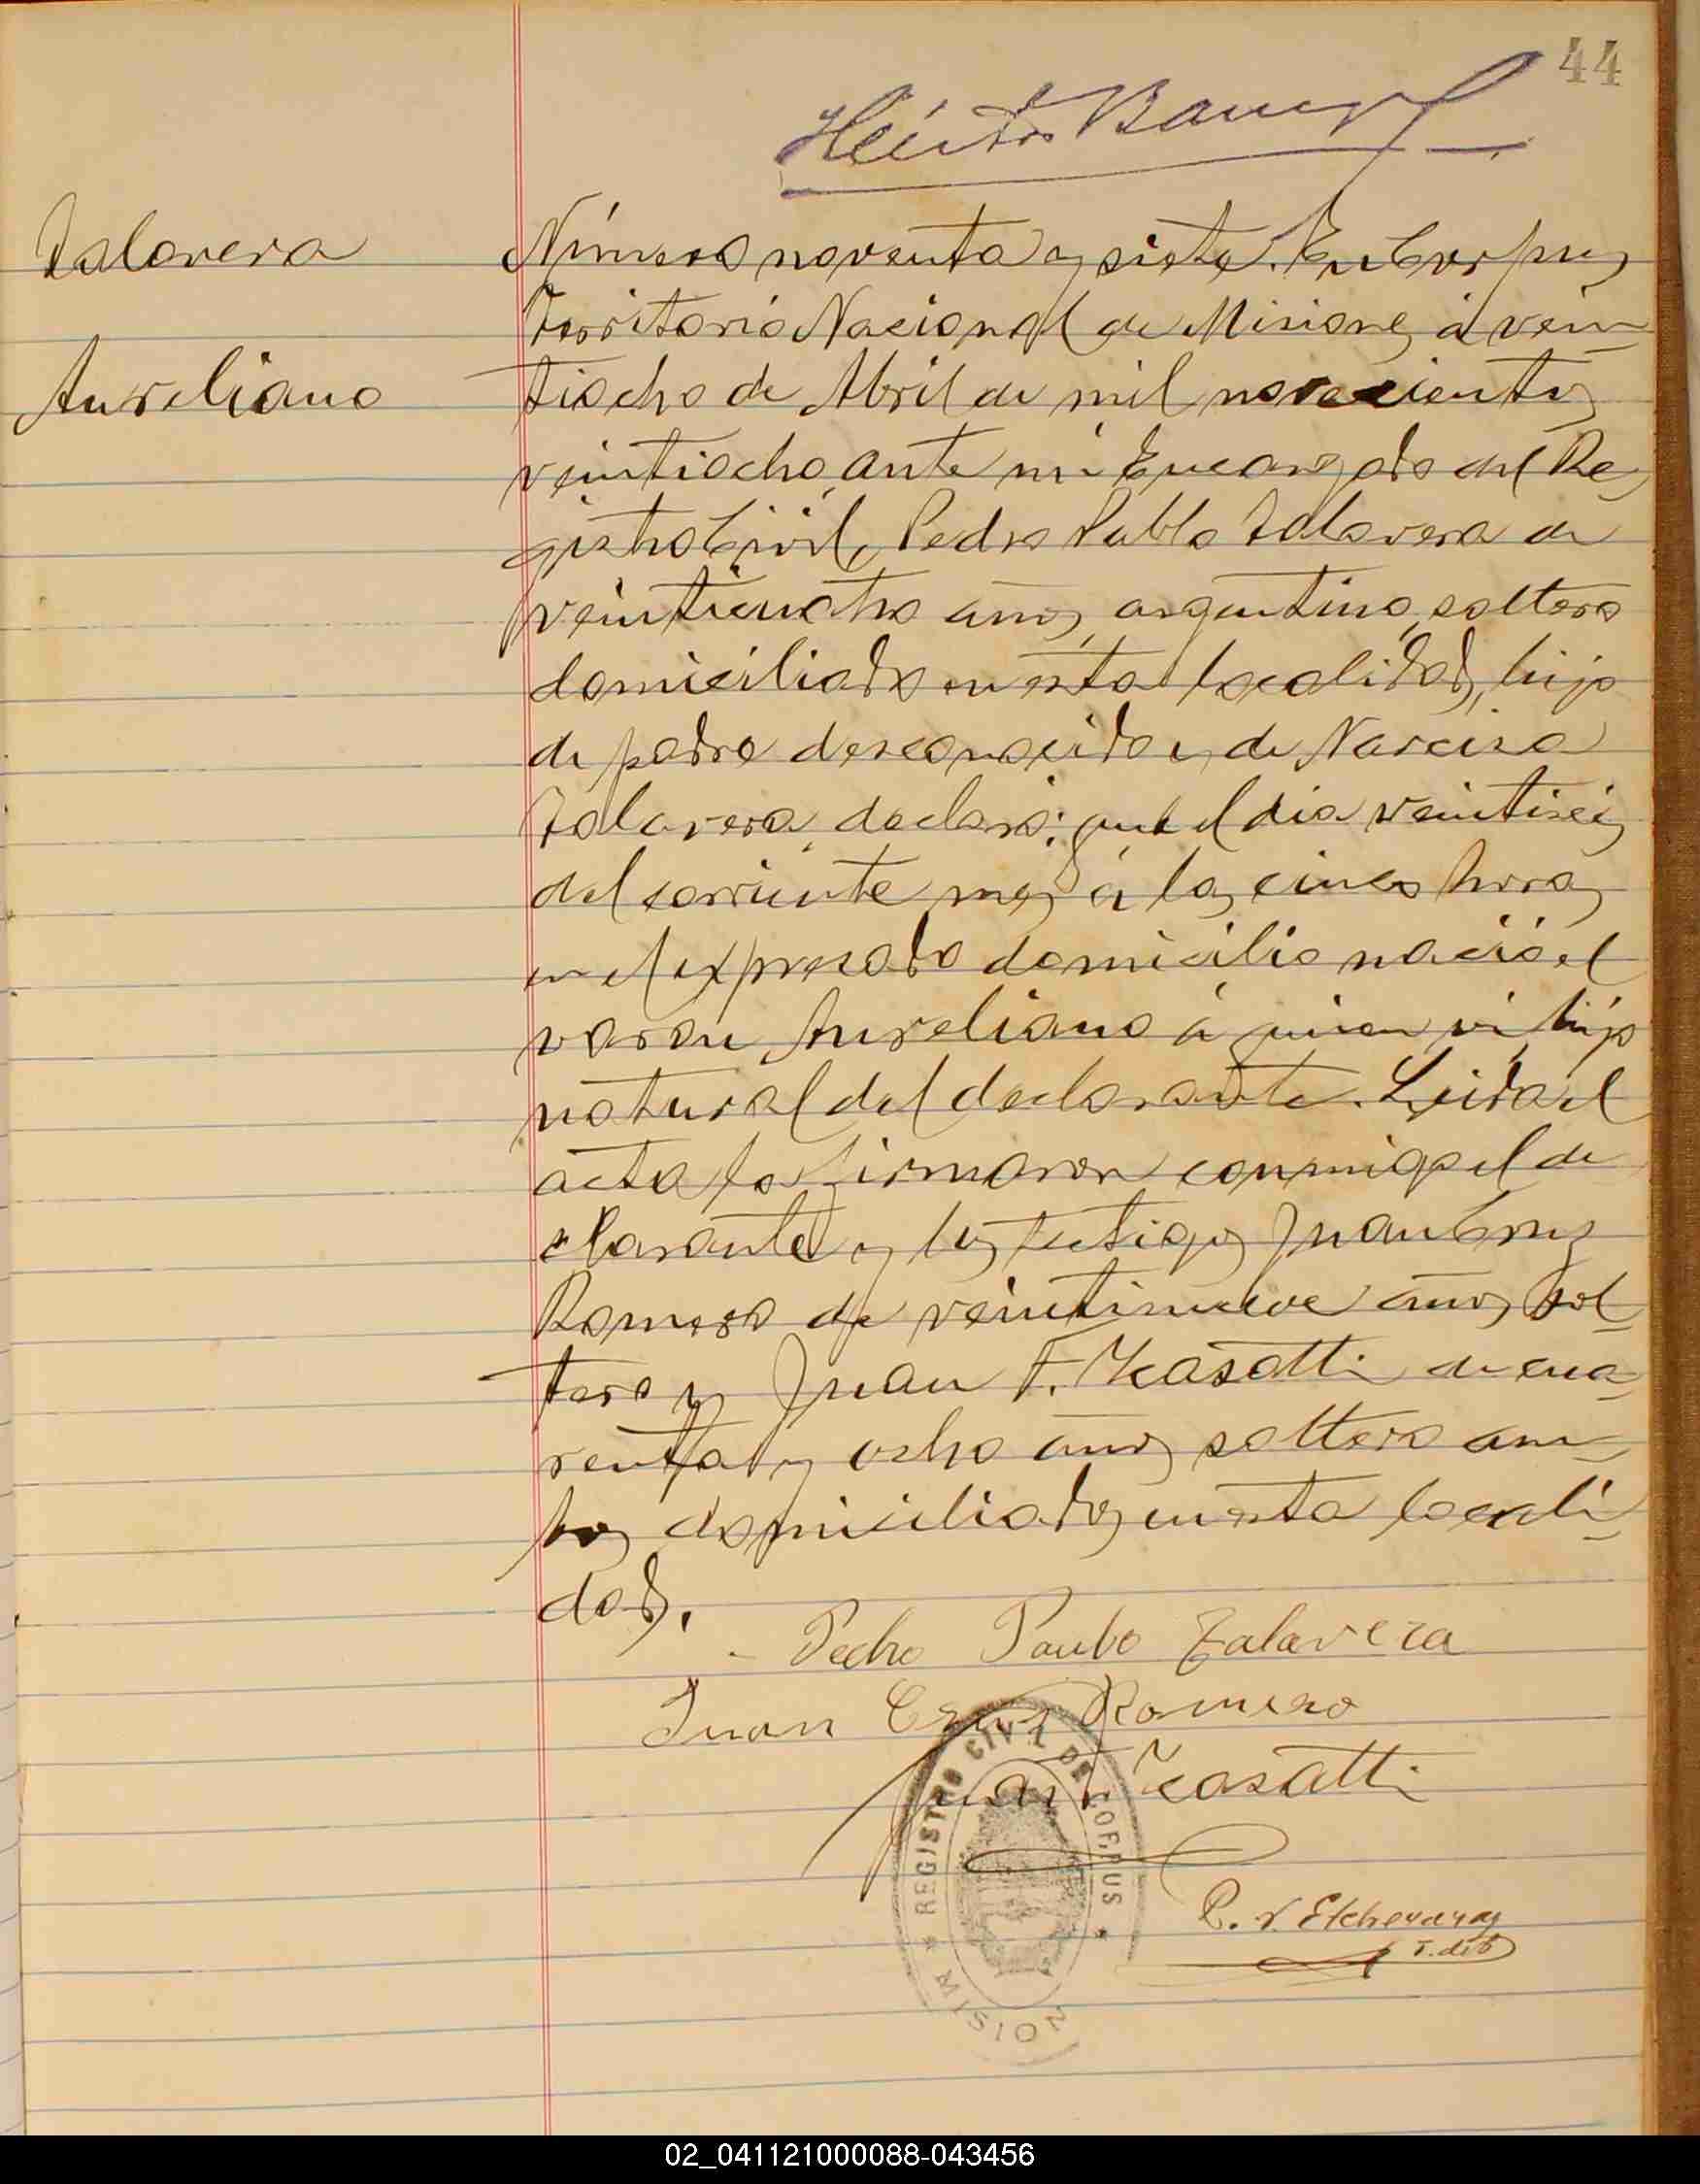 44
Talavera
Aureliano
Número noventa y siete. En Corpus
Territorio Nacional de Misiones á vein-
tiocho de Abril de mil novecientos
veintiocho, ante mi Encargado del Re-
gistro Civil, Pedro Pablo Talavera de
veinticuatro años, argentino, soltero
domiciliado en esta localidad, hijo
de padre desconocido y de Narcisa
Talavera, declaró: que el dia veintiseis
del corriente mes á las cinco horas
en el expresado domicilio nació el
varon Aureliano á quien vi, hijo
natural del declarante. Leida el
acta la firmaron conmigo el de
clarante y los testigos Juan Cruz
Romero de veintinueve años sol-
tero y Juan F. Icasatti de cua-
renta y ocho años soltero am-
bos domiciliados en esta locali-
dad.
Pedro Paublo Talavera
Juan Cruz Romero
Juan F. Icasatti
REGISTRO CIVIL DE CORPUS
MISION
02_041121000088-043456